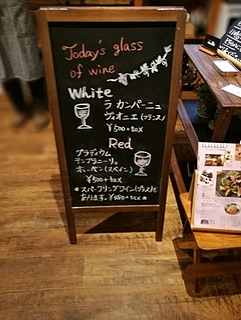 Today's glass
of wine
White
ラ カンパーニュ
ヴィオニエ(フランス)
¥500+tax
Red
プラディウム
テンプラニーリョ
ホーベン(スペイン)
¥500+tax
スパークリングワイン(グラス)も
あります。